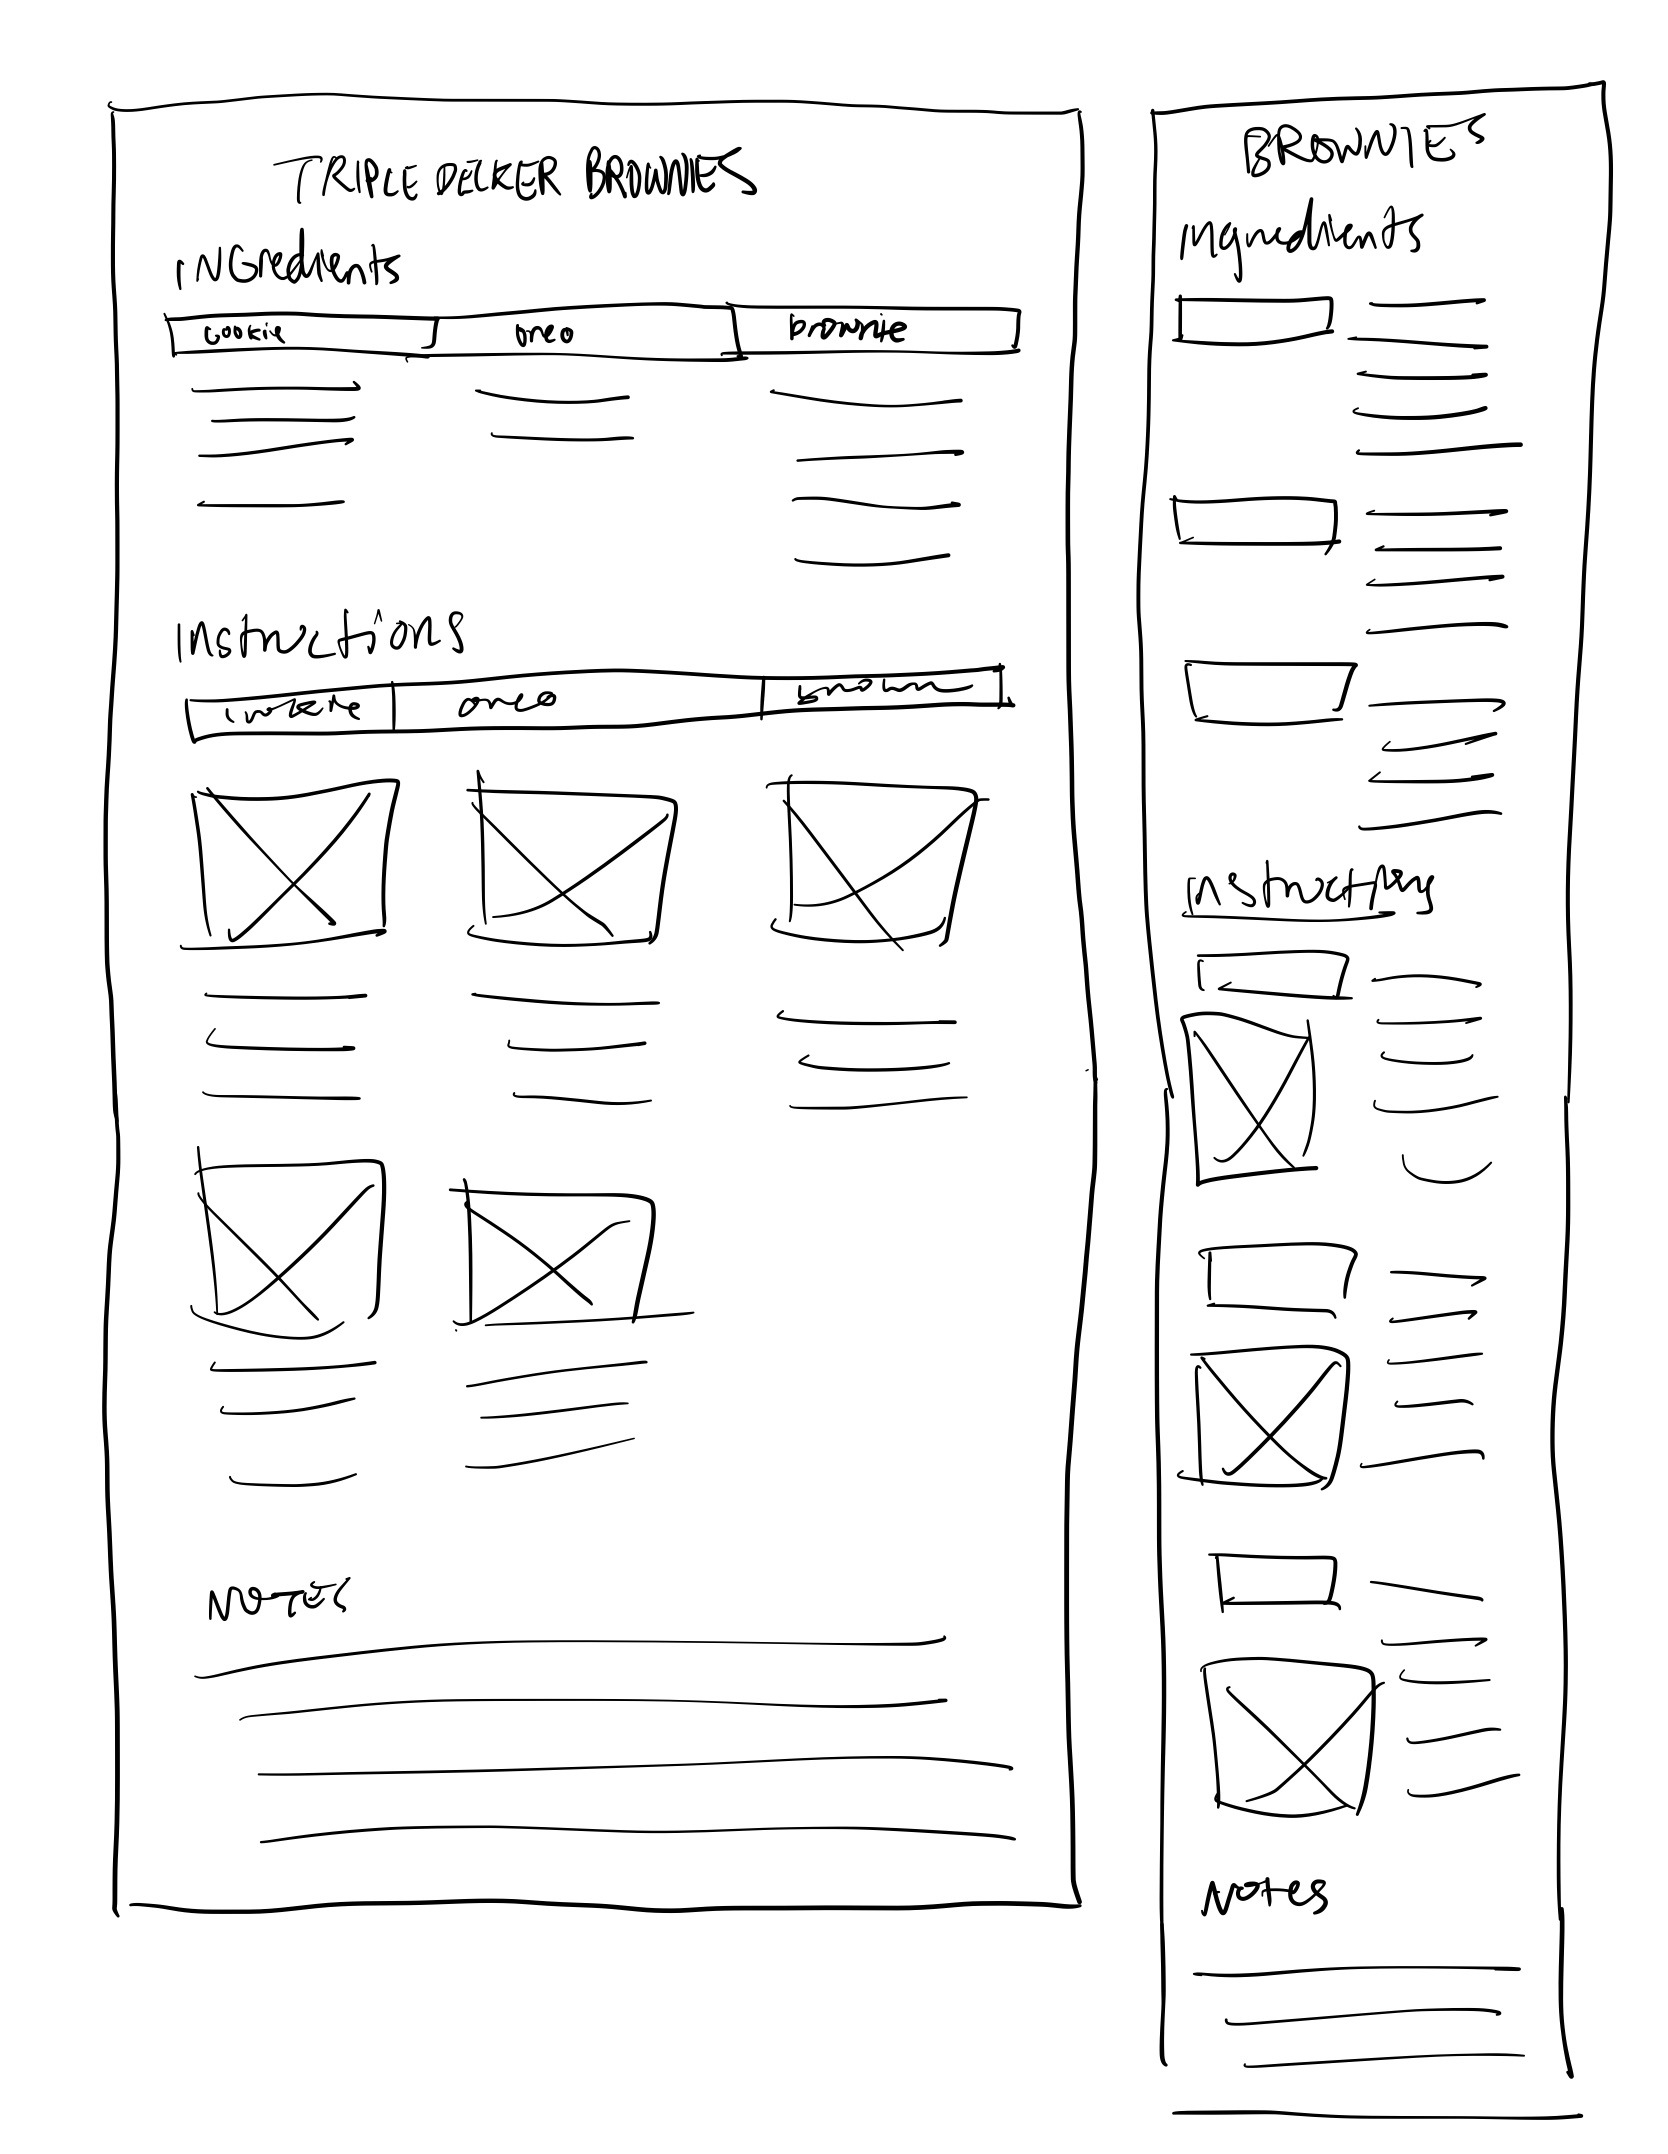 TRIPLE DECKER BROWNIES
INGredients
cookie oreo brownie
Instructions
oreo
NOTES
BROWNIES
Ingredients
Notes